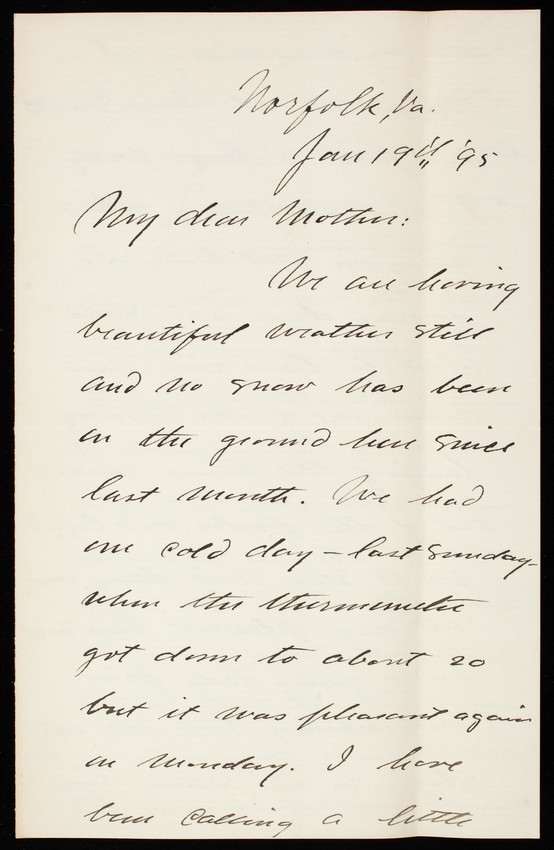 Norfolk, Va.
Jan 19th '95
My dear Mother:
We are having
beautiful weather still
and no snow has been
on the ground here since
last month. We had
one cold day – last Sunday –
when the thermometer
got down to about 20
but it was pleasant again
on Monday. I have
been calling a little